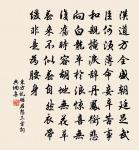 漢道方全盛朝廷足武
臣何須薄命妾辛苦事
和親掩涕辭丹鳳銜悲
向白龍單于浪驚喜無
復舊時容胡地無花草
春來不似春自然衣帶
緩非是為腰身
東方虬昭君怨三首詞